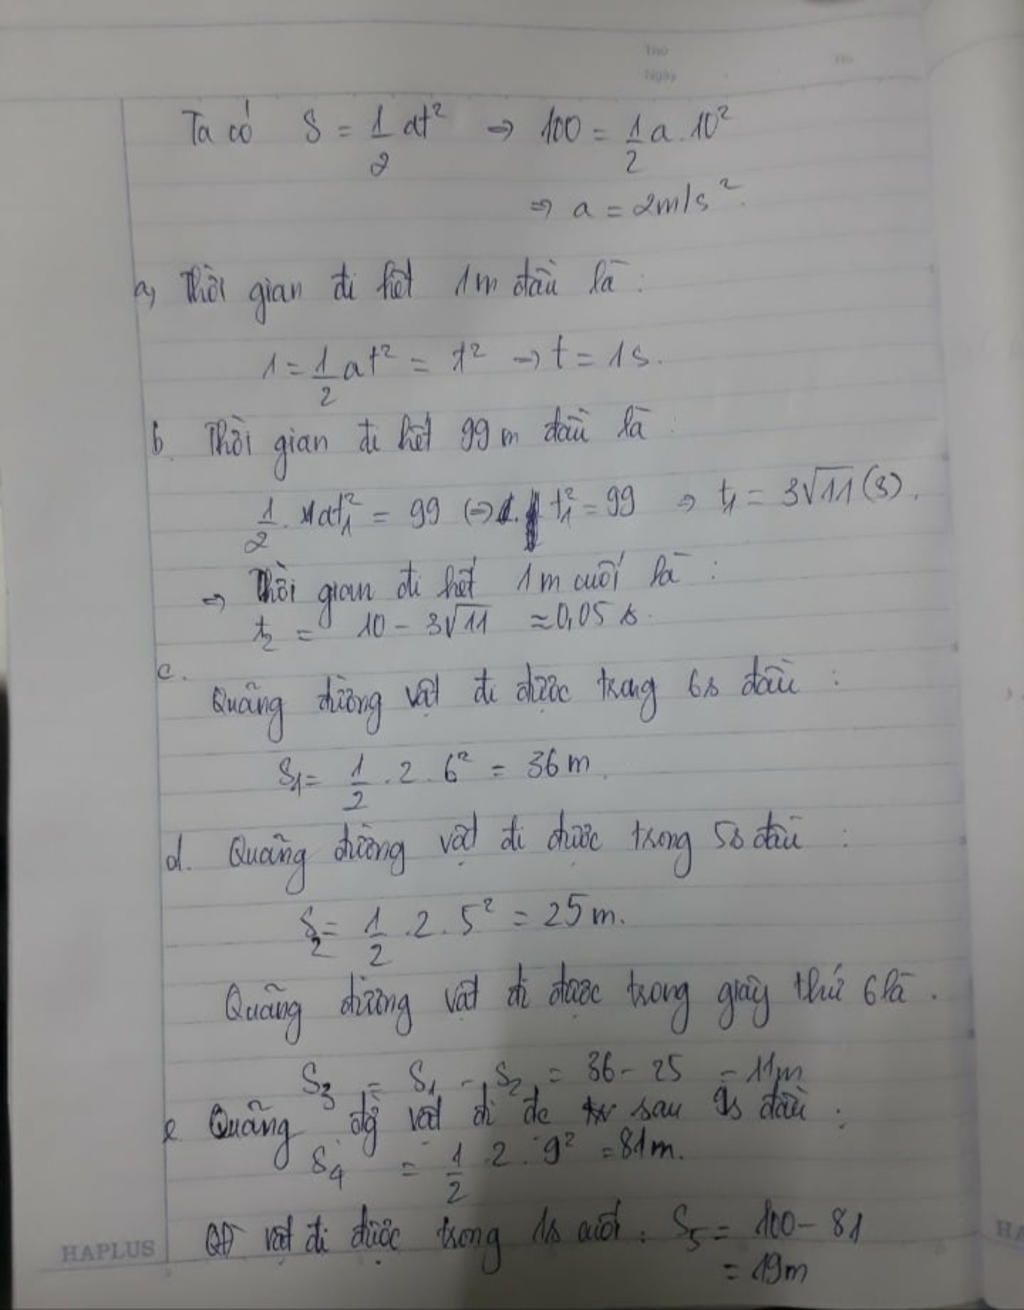 Thứ
Ngày
No
Ta có S = 1/2 at² → 100 = 1/2 a . 10²
⇒ a = 2m/s².
a, Thời gian đi hết 1m đầu là :
1 = 1/2 at² = t² → t = 1s.
b. Thời gian đi hết 99m đầu là :
1/2 . at₁² = 99 (⇒ t₁² = 99 ⇒ t₁ = 3√11 (s).
⇒ Thời gian đi hết 1m cuối là :
t₂ = 10 - 3√11 ≈ 0,05 s.
c.
Quãng đường vật đi được trong 6s đầu :
S₁ = 1/2 . 2 . 6² = 36m.
d. Quãng đường vật đi được trong 5s đầu :
S₂ = 1/2 . 2 . 5² = 25m.
Quãng đường vật đi được trong giây thứ 6 là .
S₃ = S₁ - S₂ = 36 - 25 = 11m
e Quãng đg vật đi đc sau 9s đầu :
S₄ = 1/2 . 2 . 9² = 81m.
QĐ vật đi được trong 1s cuối : S₅ = 100 - 81
= 19m
HAPLUS
HA